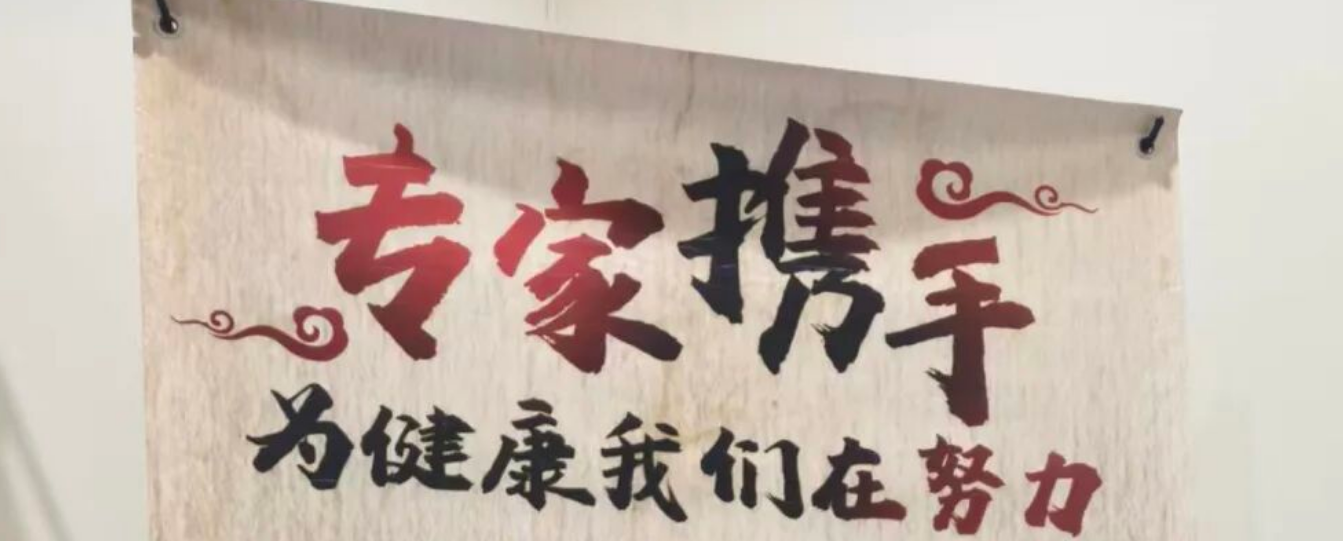 专家携手
为健康我们在努力